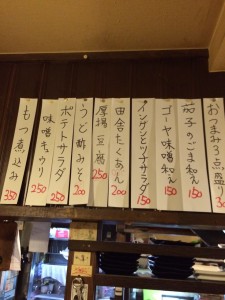 おつまみ3点盛り
茄子のごま和え 150
ゴーヤ味噌和え 150
インゲンとツナサラダ 150
田舎たくあん 200
厚揚豆腐 250
うど酢みそ 200
ポテトサラダ 250
味噌キュウリ 250
もつ煮込み 350